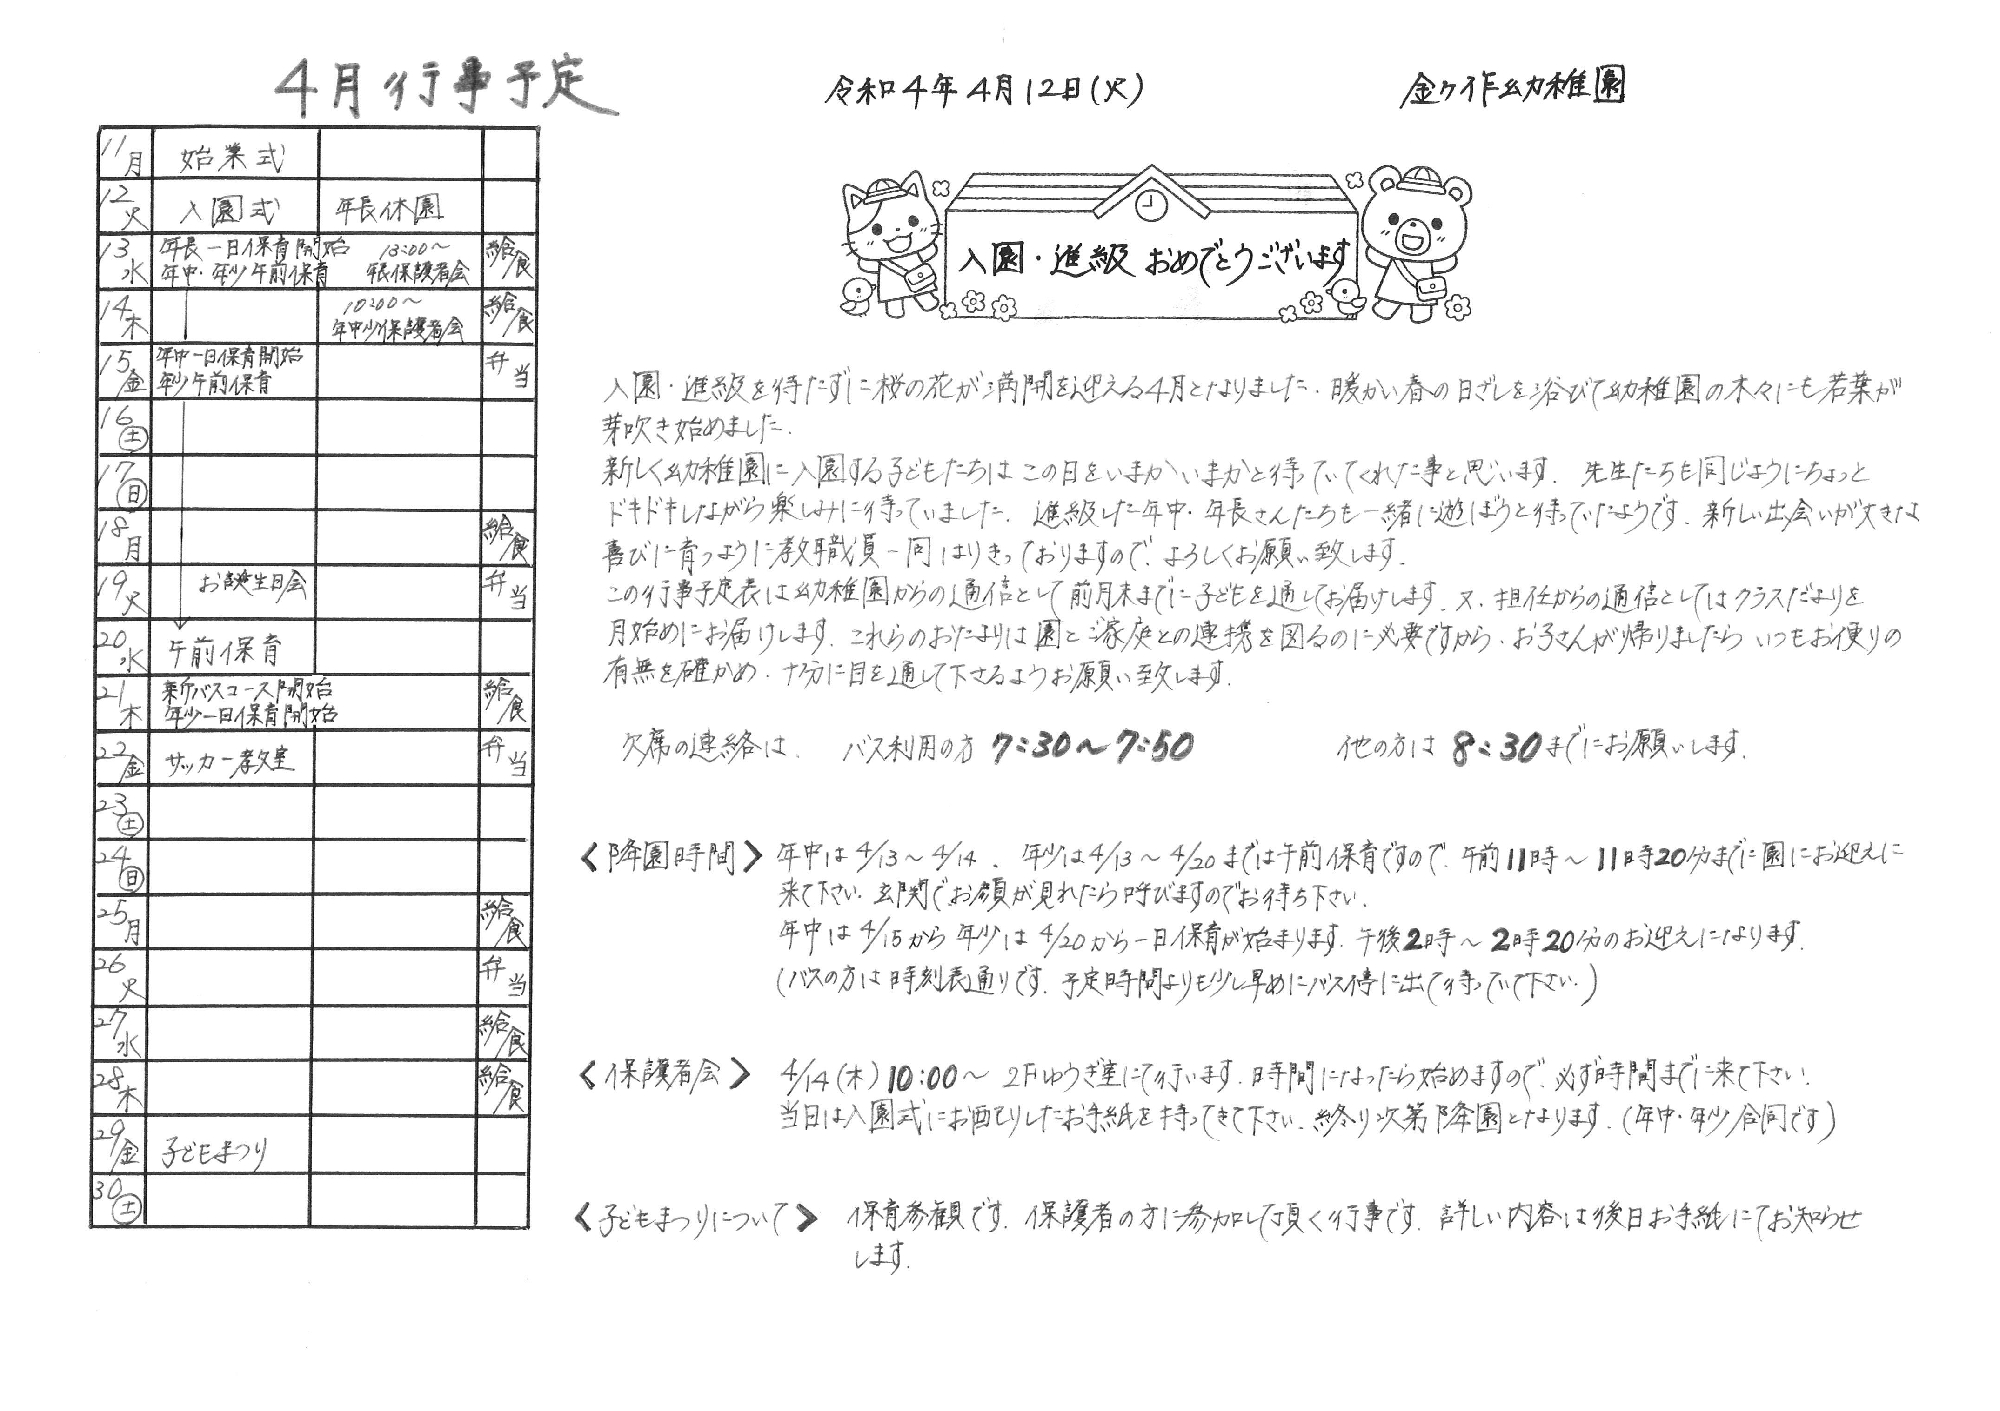 4月行事予定
令和4年4月12日(火)
金ケ作幼稚園
11月 始業式
12火 入園式 年長休園
13水 年長一日保育開始 13:00～ 給食
年中・年少午前保育 年長保護者会
14木 10:00～ 給食
年中少保護者会
15金 年中一日保育開始 弁当
年少午前保育
16土
17日
18月 給食
19火 お誕生日会 弁当
20水 午前保育
21木 新バスコース開始 給食
年少一日保育開始
22金 サッカー教室 弁当
23土
24日
25月 給食
26火 弁当
27水 給食
28木 給食
29金 子どもまつり
30土
入園・進級 おめでとうございます
入園・進級を待たずに桜の花が満開を迎える4月となりました。暖かい春の日ざしを浴びて幼稚園の木々にも若葉が
芽吹き始めました。
新しく幼稚園に入園する子どもたちはこの日をいまかいまかと待っていてくれた事と思います。先生たちも同じようにちょっと
ドキドキしながら楽しみに待っていました。進級した年中・年長さんたちも一緒に遊ぼうと待っていたようです。新しい出会いが大きな
喜びに育つように教職員一同はりきっておりますので、よろしくお願い致します。
この行事予定表は幼稚園からの通信として前月末までに子どもを通してお届けします。又、担任からの通信としてはクラスだよりを
月始めにお届けします。これらのおたよりは園とご家庭との連携を図るのに必要ですから、お子さんが帰りましたらいつもお便りの
有無を確かめ、十分に目を通して下さるようお願い致します。
欠席の連絡は、 バス利用の方 7:30～7:50 他の方は 8:30までにお願いします。
〈降園時間〉 年中は4/13～4/14、年少は4/13～4/20までは午前保育ですので、午前11時～11時20分までに園にお迎えに
来て下さい。玄関でお顔が見れたら呼びますのでお待ち下さい。
年中は4/15から年少は4/20から一日保育が始まります。午後2時～2時20分のお迎えになります。
(バスの方は時刻表通りです。予定時間よりも少し早めにバス停に出て待っていて下さい。)
〈保護者会〉 4/14(木)10:00～ 2Fゆうぎ室にて行います。時間になったら始めますので、必ず時間までに来て下さい。
当日は入園式にお配りしたお手紙を持ってきて下さい。終り次第降園となります。(年中・年少合同です)
〈子どもまつりについて〉 保育参観です。保護者の方に参加して頂く行事です。詳しい内容は後日お手紙にてお知らせ
します。